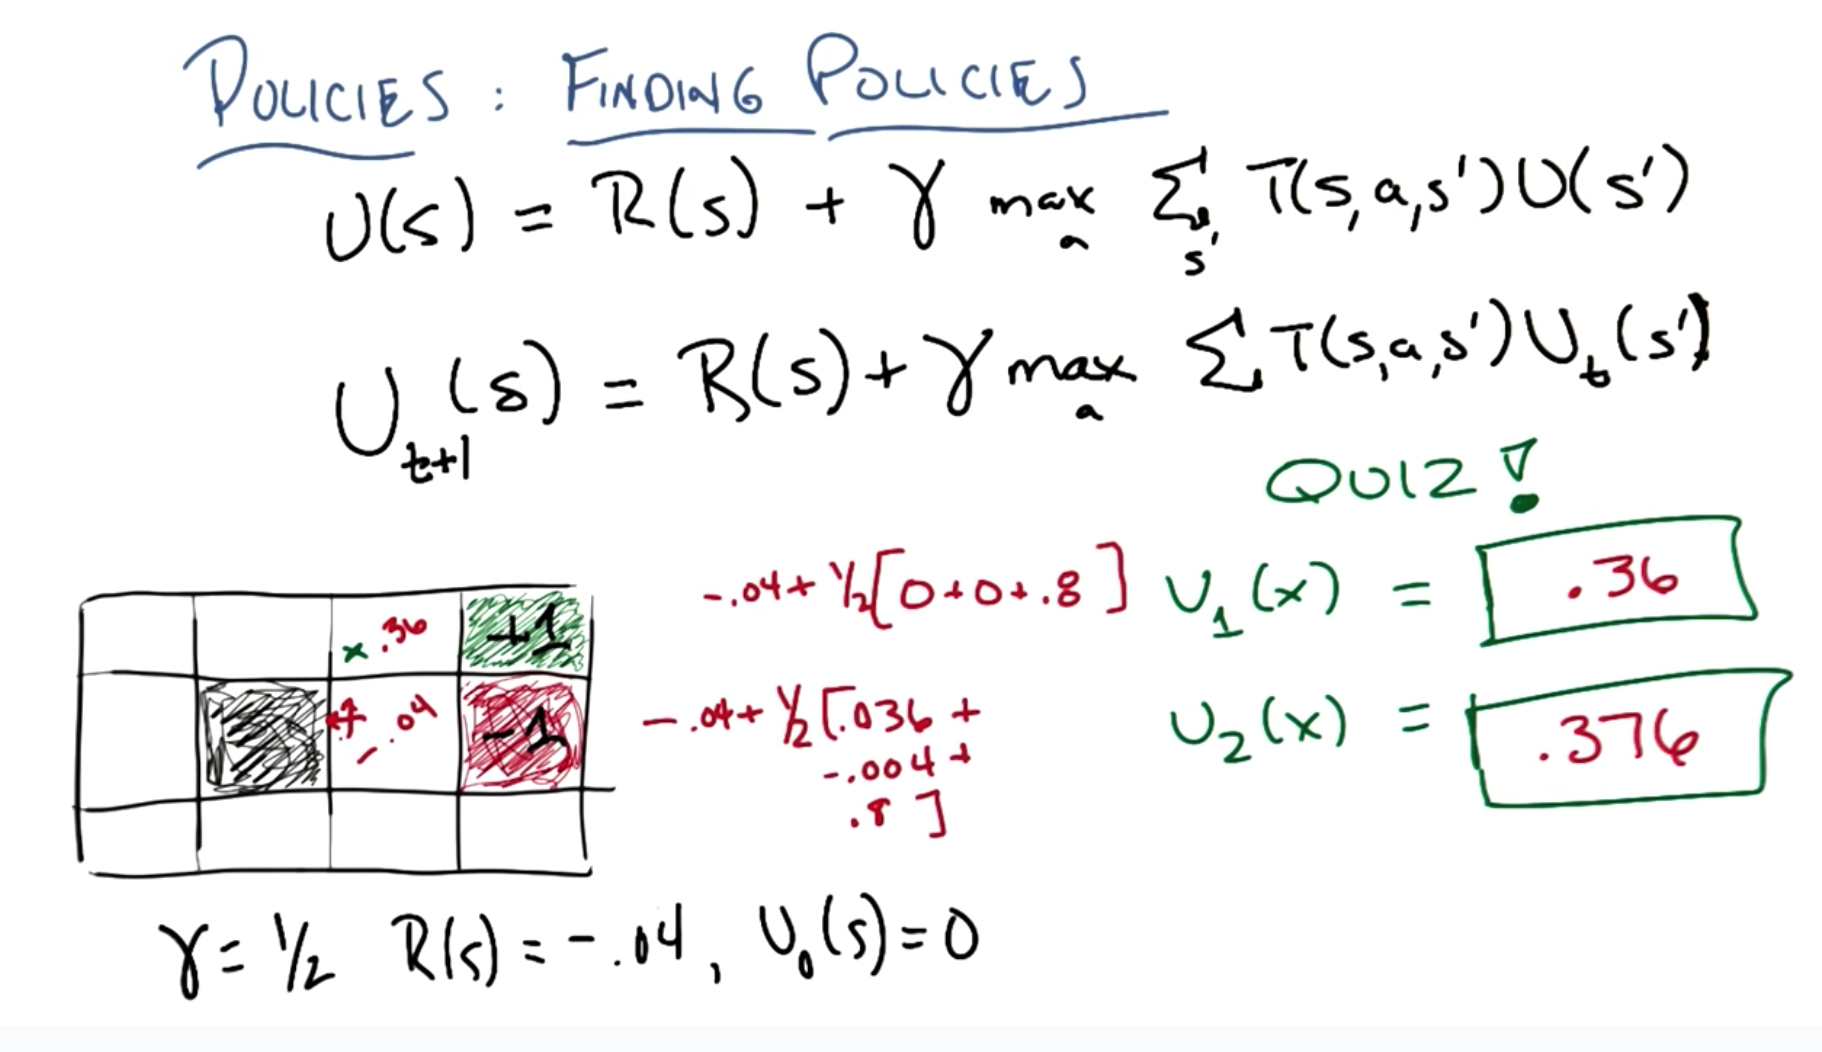 POLICIES: FINDING POLICIES
U(s) = R(s) + γ max_a Σ_s' T(s,a,s')U(s')
U_t+1(s) = R(s) + γ max_a Σ T(s,a,s')U_t(s')
QUIZ!
-.04 + 1/2[0+0+.8] U_1(x) = .36
x .36 +1
-.04 -1
-.04 + 1/2[.036 +
-.004 +
.8]
U_2(x) = .376
γ = 1/2 R(s) = -.04, U_0(s) = 0